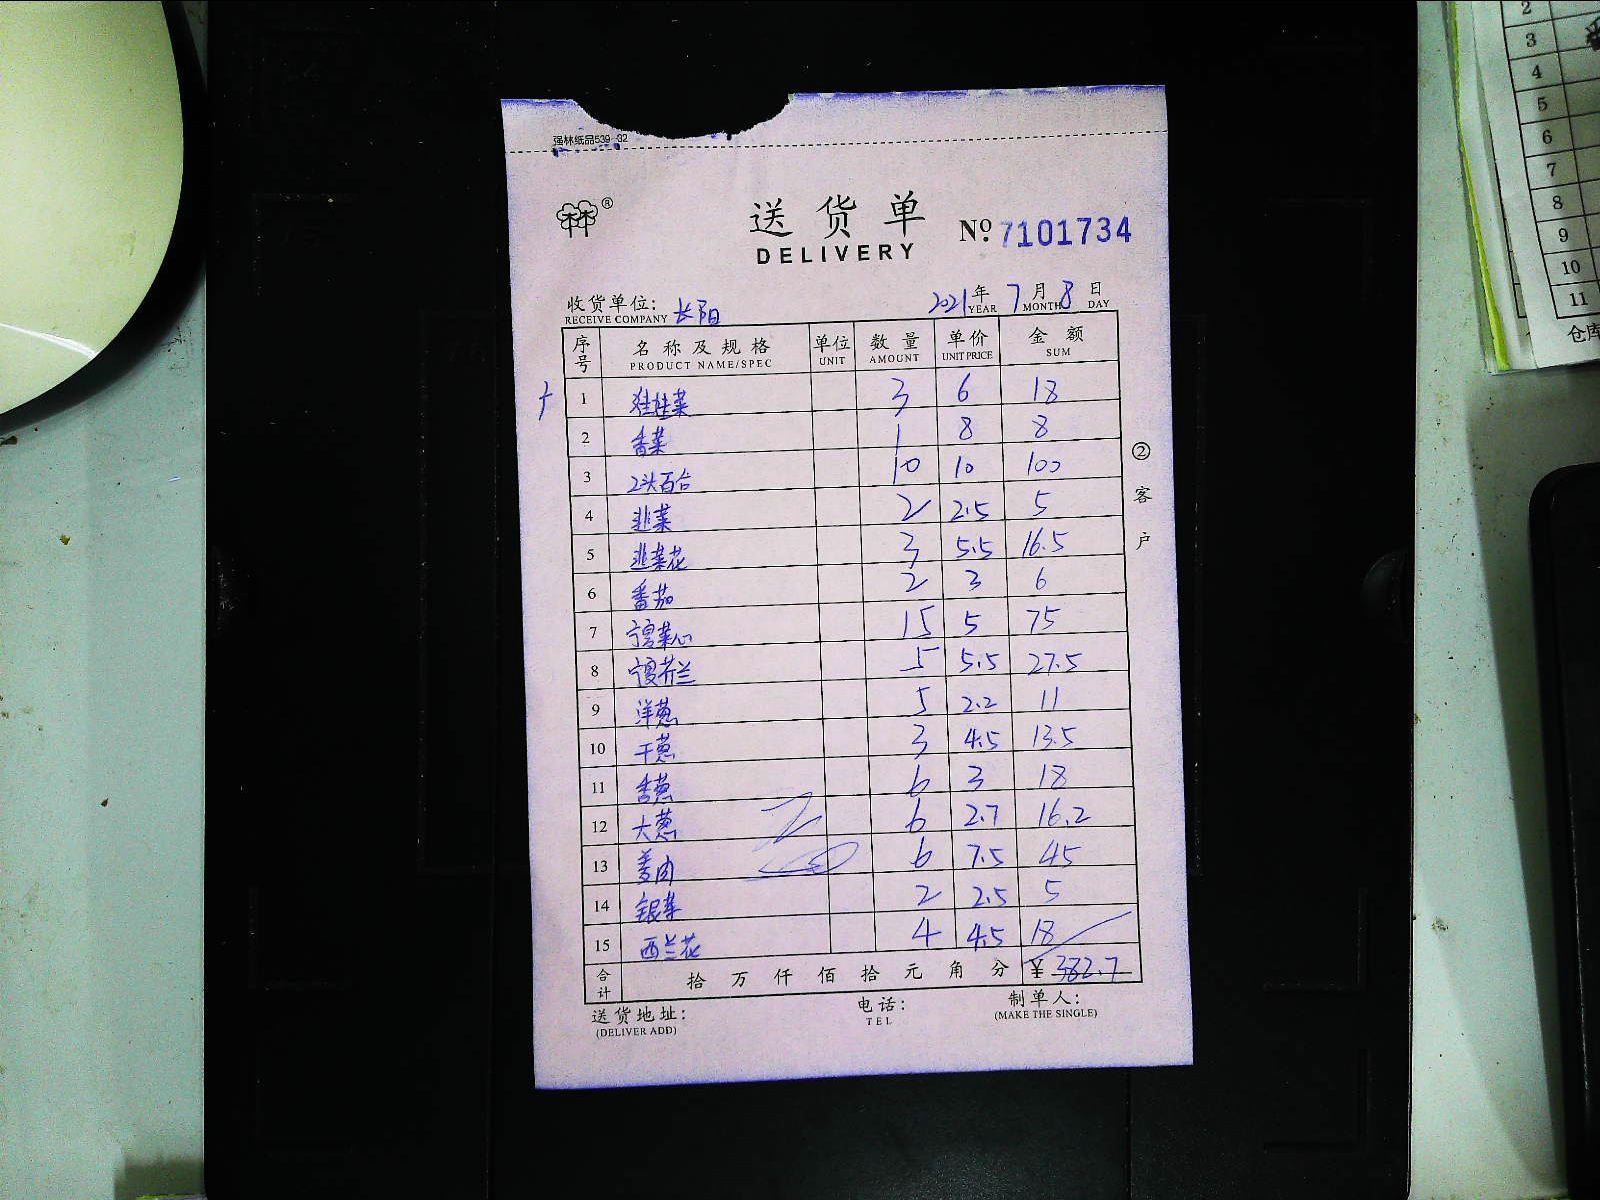 强林纸品539-32
送货单
DELIVERY
№ 7101734
收货单位: 长阳 2021年 7月 8日
RECEIVE COMPANY YEAR MONTH DAY
序号 名称及规格 单位 数量 单价 金额
PRODUCT NAME/SPEC UNIT AMOUNT UNIT PRICE SUM
1 娃娃菜 3 6 18
2 香菜 1 8 8
3 2头百合 10 10 100
4 韭菜 2 2.5 5
5 韭菜花 3 5.5 16.5
6 番茄 2 3 6
7 宁夏菜心 15 5 75
8 宁夏芥兰 5 5.5 27.5
9 洋葱 5 2.2 11
10 干葱 3 4.5 13.5
11 香葱 6 3 18
12 大葱 6 2.7 16.2
13 姜肉 6 7.5 45
14 银芽 2 2.5 5
15 西兰花 4 4.5 18
合计 拾万仟佰拾元角分 ¥ 382.7
送货地址: 电话: 制单人:
(DELIVER ADD) TEL (MAKE THE SINGLE)
②客户
2
3
4
5
6
7
8
9
10
11
仓库